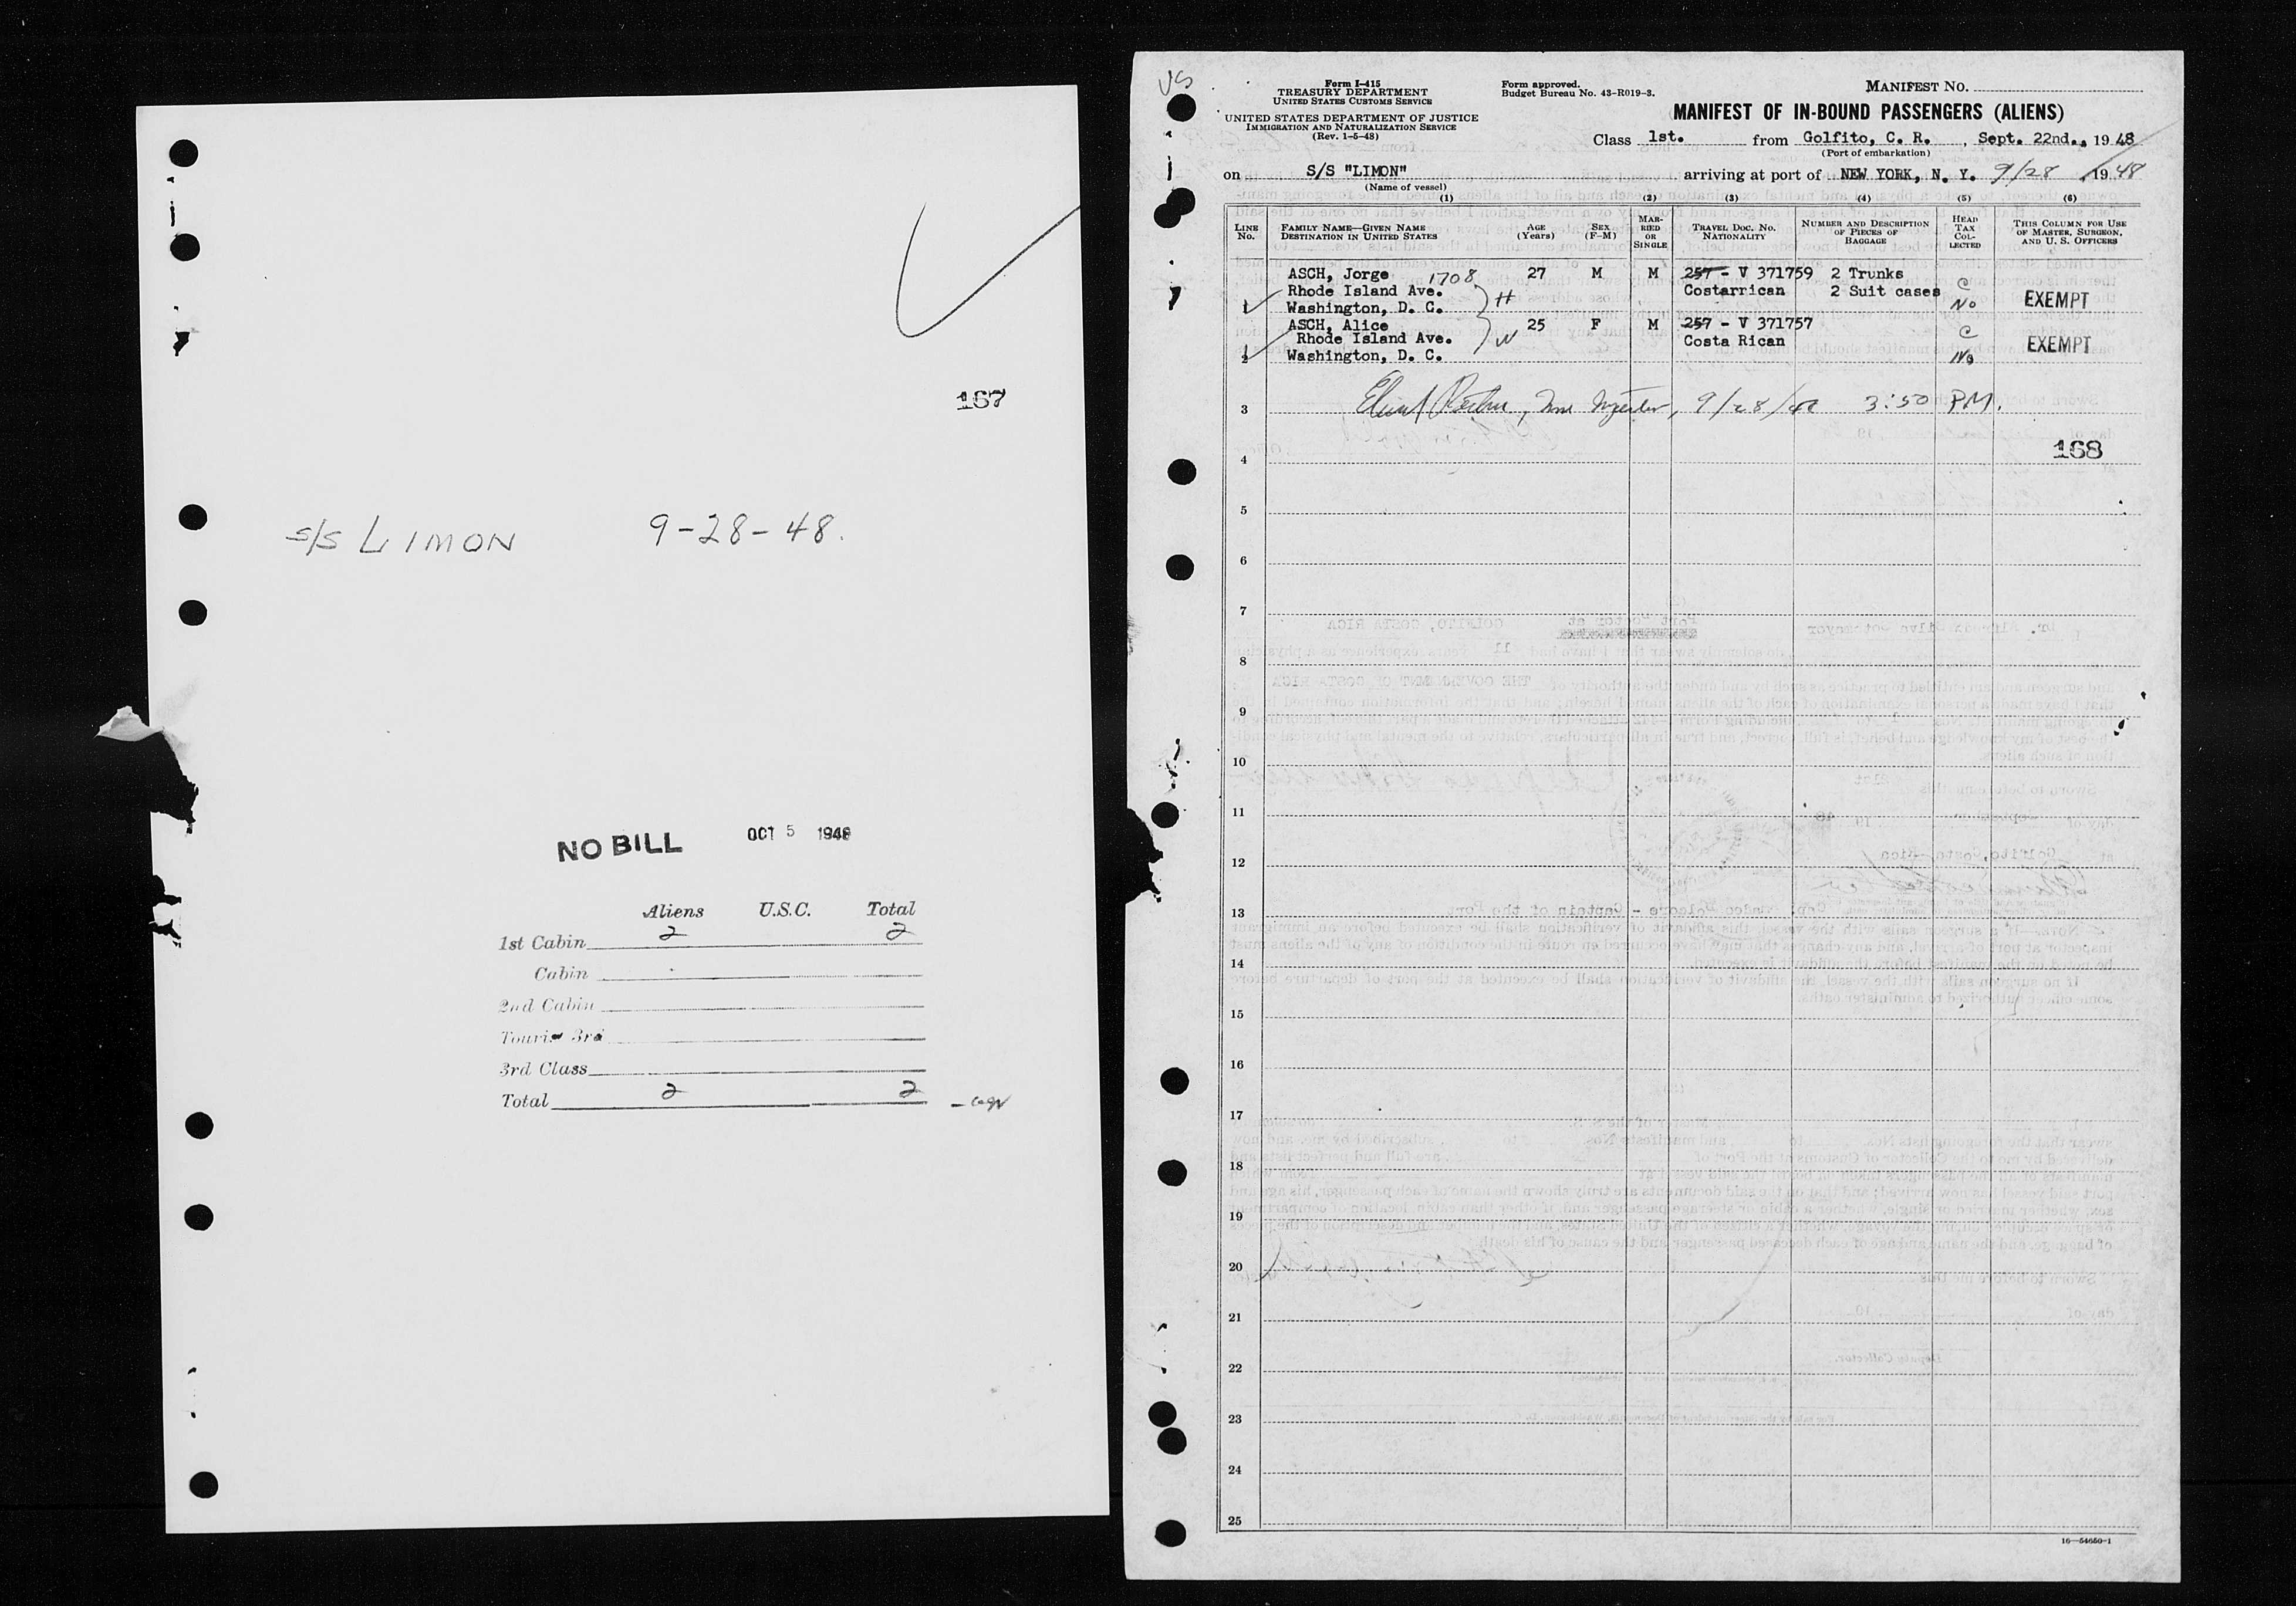 167
s/s LIMON 9-28-48.
NO BILL OCT 5 1948
Aliens U.S.C. Total
1st Cabin 2 2
Cabin
2nd Cabin
Tourist 3rd
3rd Class
Total 2 2
Form I-415
TREASURY DEPARTMENT
UNITED STATES CUSTOMS SERVICE
UNITED STATES DEPARTMENT OF JUSTICE
IMMIGRATION AND NATURALIZATION SERVICE
(Rev. 1-5-48)
Form approved.
Budget Bureau No. 43-R019-3.
MANIFEST NO.
MANIFEST OF IN-BOUND PASSENGERS (ALIENS)
Class 1st. from Golfito, C. R. , Sept. 22nd., 1948
(Port of embarkation)
on S/S "LIMON" arriving at port of NEW YORK, N. Y. 9/28, 1948
(Name of vessel)
(1) (2) (3) (4) (5) (6)
LINE NO. FAMILY NAME—GIVEN NAME DESTINATION IN UNITED STATES AGE (Years) SEX (F-M) MARRIED OR SINGLE TRAVEL DOC. NO. NATIONALITY NUMBER AND DESCRIPTION OF PIECES OF BAGGAGE HEAD TAX COLLECTED THIS COLUMN FOR USE OF MASTER, SURGEON, AND U. S. OFFICERS
ASCH, Jorge 1708 27 M M 257 - V 371759 2 Trunks C
Rhode Island Ave. H Costarrican 2 Suit cases
1 Washington, D. C. No EXEMPT
ASCH, Alice 25 F M 257 - V 371757 C
Rhode Island Ave. W Costa Rican
2 Washington, D. C. No EXEMPT
3 9/28/48 3:50 PM.
168
4
5
6
7
8
9
10
11
12
13
14
15
16
17
18
19
20
21
22
23
24
25
16—54650-1